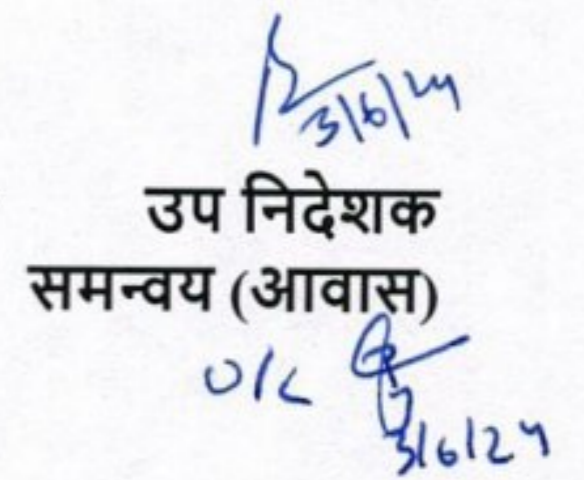 3/6/24
उप निदेशक
समन्वय (आवास)
O/C
3/6/24